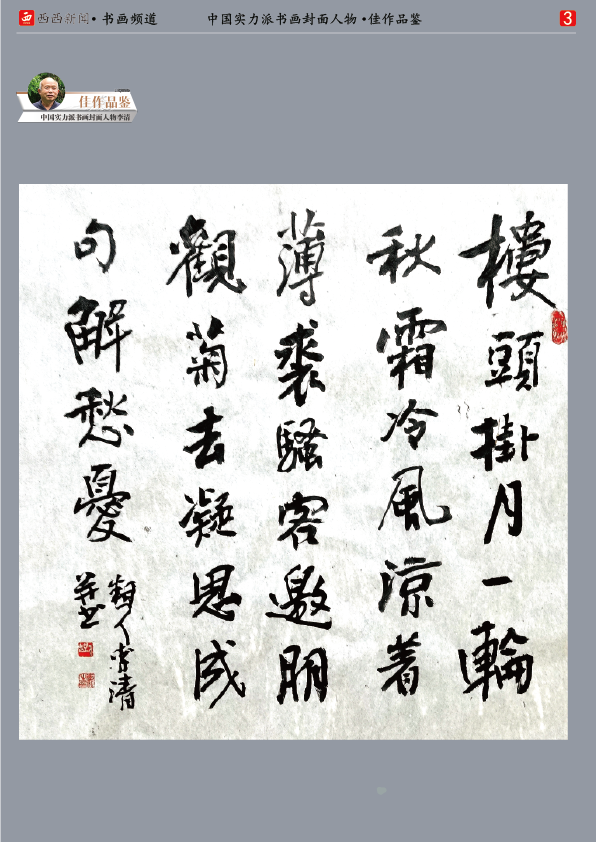 西西新闻·书画频道
中国实力派书画封面人物·佳作品鉴
3
佳作品鉴
中国实力派书画封面人物李清
樓頭掛月一輪
秋霜冷風涼着
薄裘騷客邀朋
觀菊去凝思成
句解愁憂
李清